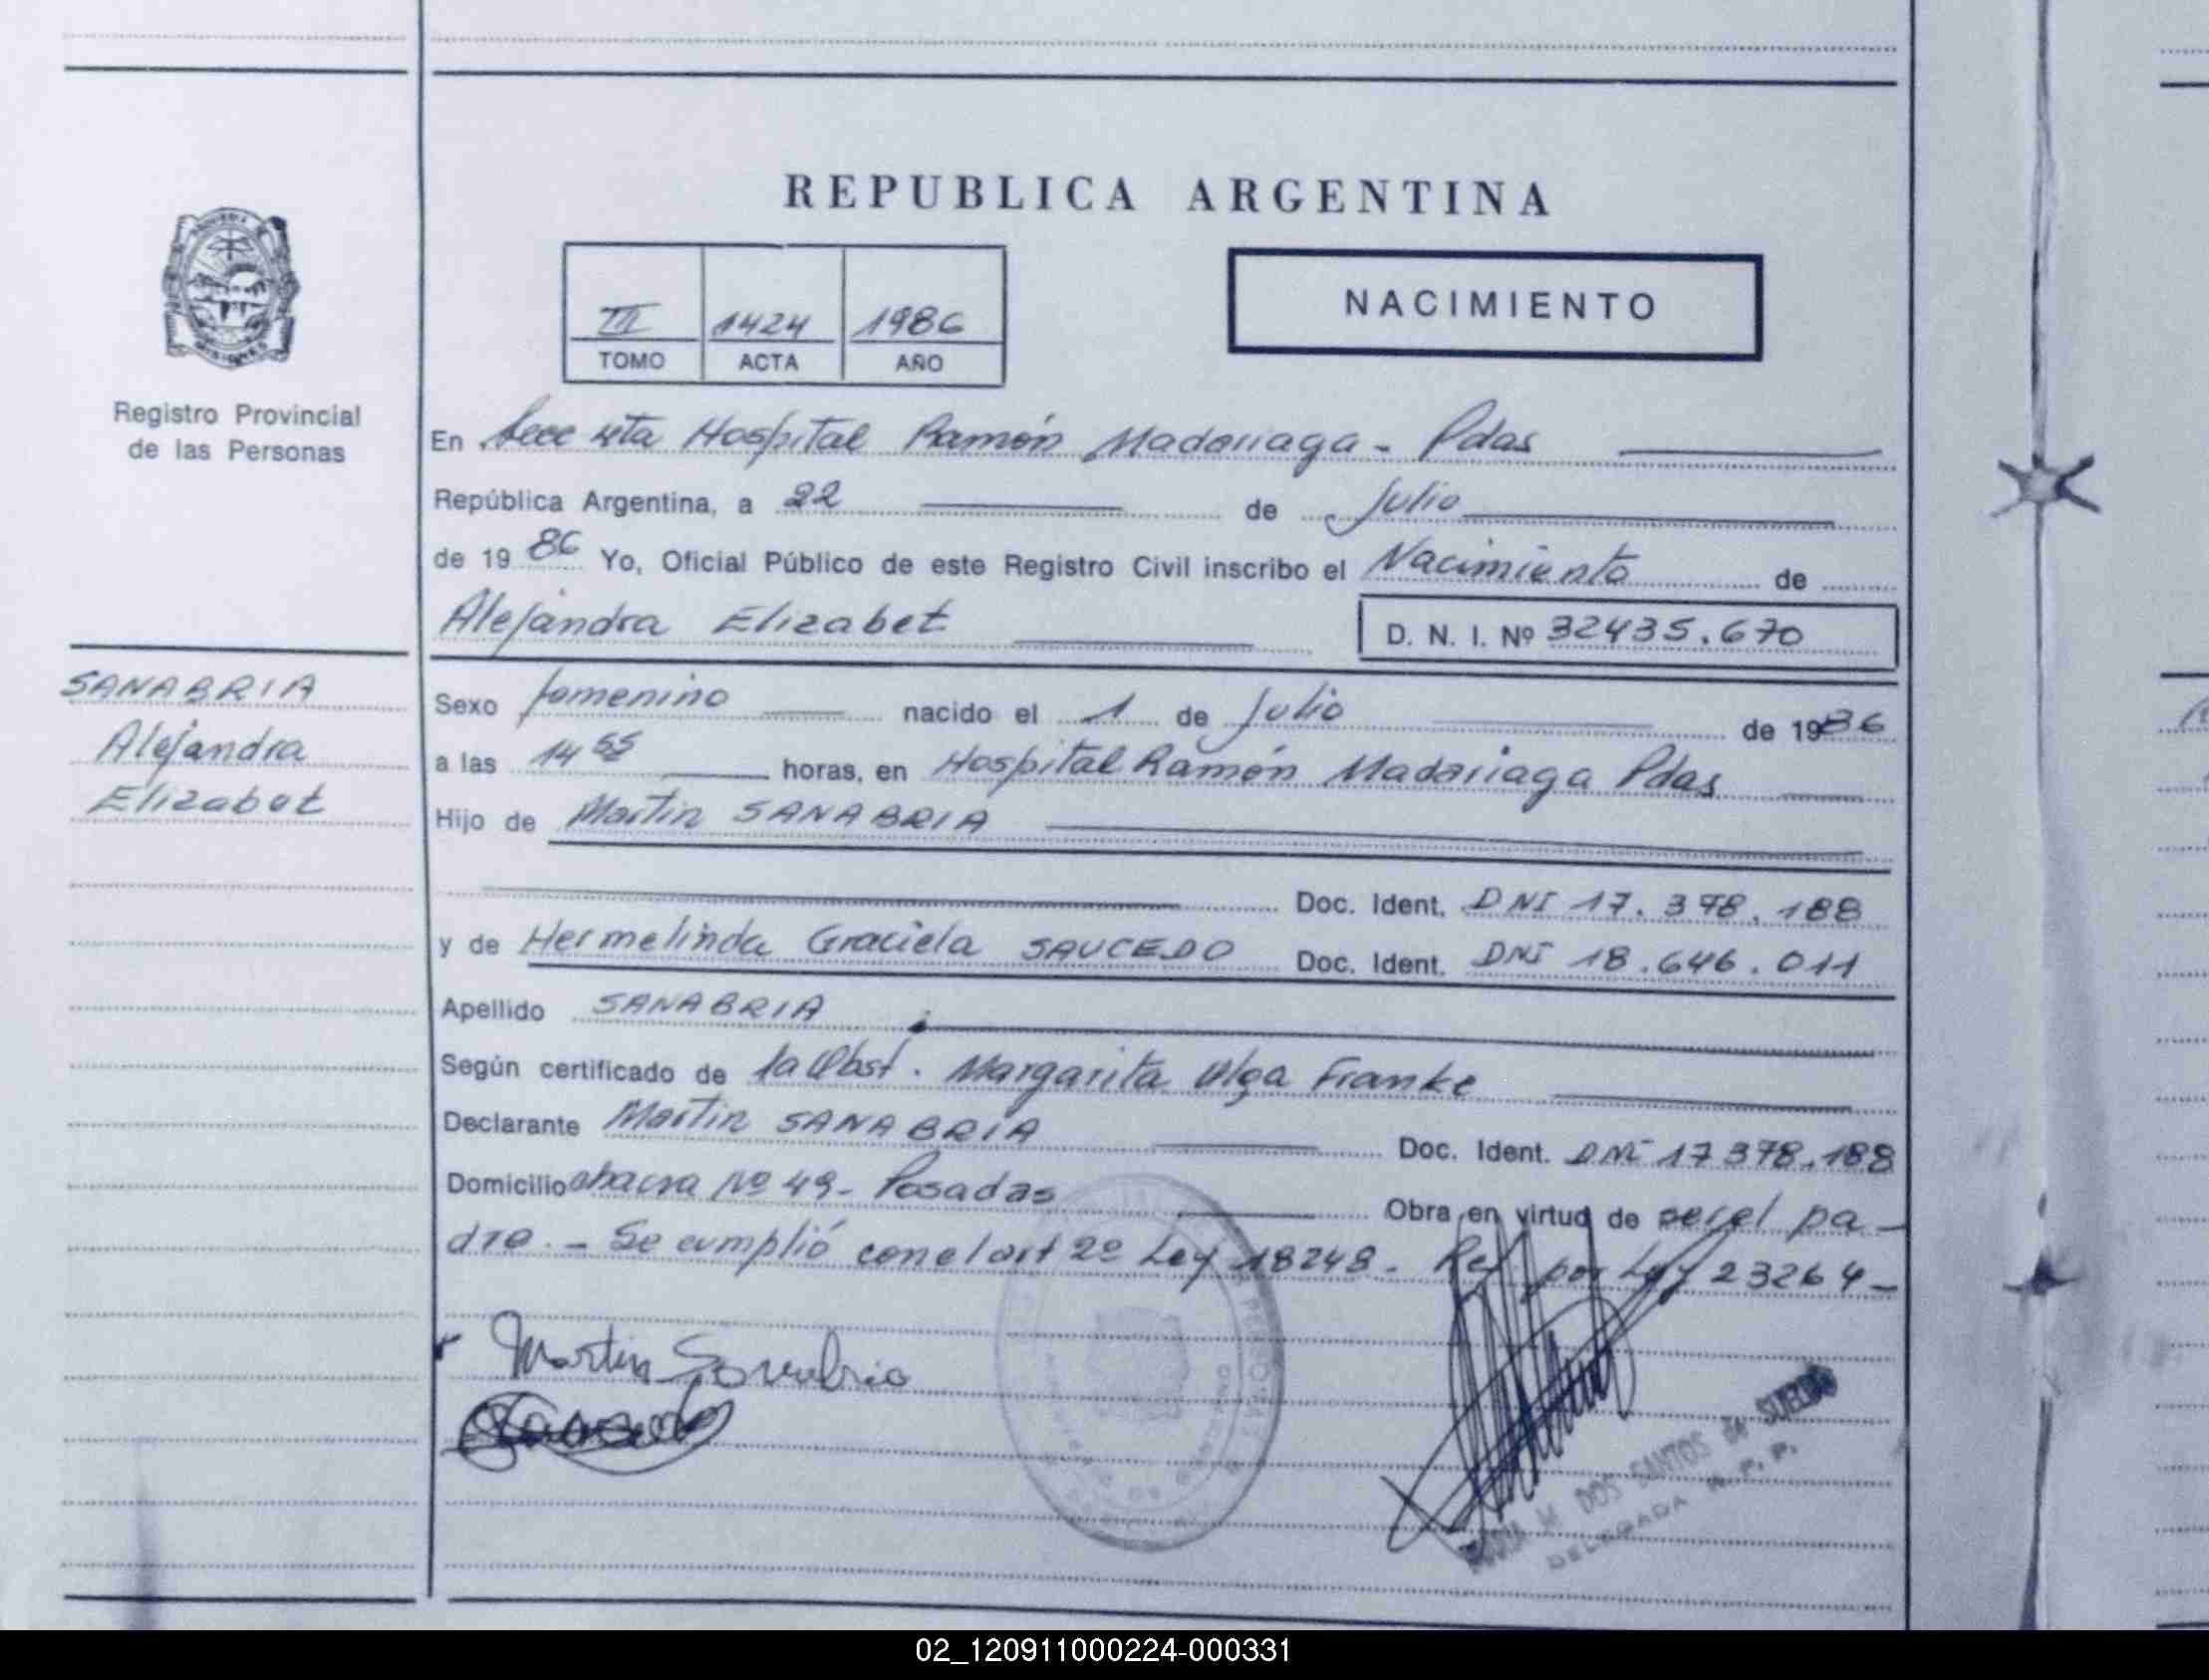 REPUBLICA ARGENTINA
III 1424 1986
TOMO ACTA AÑO
NACIMIENTO
Registro Provincial
de las Personas
SANABRIA
Alejandra
Elizabet
En Secc 4ta Hospital Ramón Madariaga - Pdas
República Argentina, a 22 de Julio
de 1986 Yo, Oficial Público de este Registro Civil inscribo el Nacimiento de
Alejandra Elizabet D. N. I. Nº 32435.670
Sexo femenino nacido el 1 de Julio de 1986
a las 14 55 horas, en Hospital Ramón Madariaga Pdas
Hijo de Martin SANABRIA
Doc. Ident. DNI 17.378.188
y de Hermelinda Graciela SAUCEDO Doc. Ident. DNI 18.646.011
Apellido SANABRIA
Según certificado de la Obst. Margarita Olga Franke
Declarante Martin SANABRIA Doc. Ident. DNI 17378.188
Domicilio chacra Nº 49 - Posadas Obra en virtud de ser el pa-
dre. - Se cumplió con el art 2º Ley 18248 - Ref. por Ley 23264 -
Martin Sanabria
M. DOS SANTOS de
DELEGADA R. P. P.
02_120911000224-000331